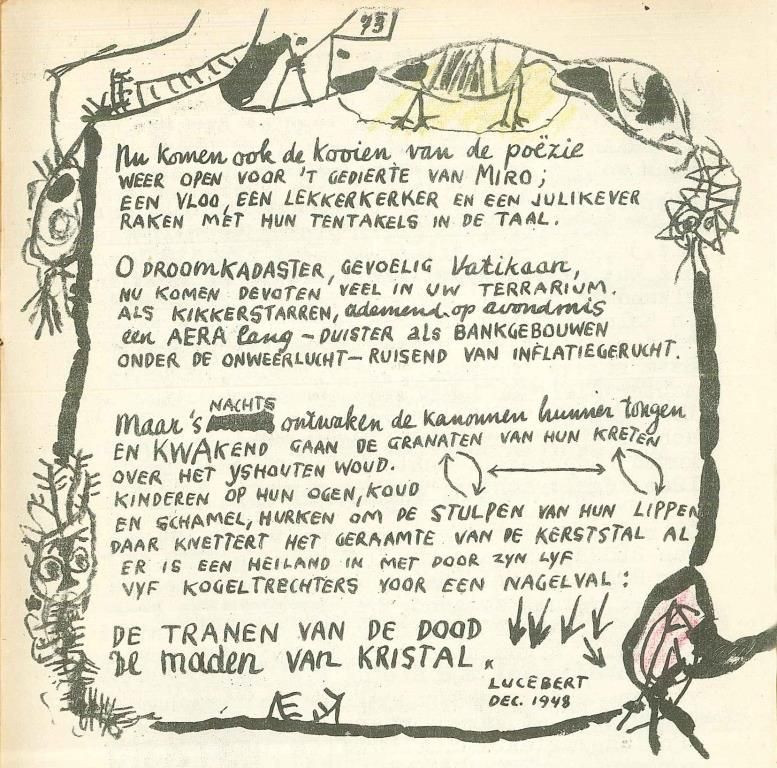 73
Nu komen ook de kooien van de poëzie
WEER OPEN VOOR 'T GEDIERTE VAN MIRO;
EEN VLOO, EEN LEKKERKERKER EN EEN JULIKEVER
RAKEN MET HUN TENTAKELS IN DE TAAL.
O DROOMKADASTER, GEVOELIG Vatikaan,
NU KOMEN DEVOTEN VEEL IN UW TERRARIUM.
ALS KIKKERSTARREN, ademend op avondmis
een AERA lang – DUISTER als BANKGEBOUWEN
ONDER DE ONWEERLUCHT – RUISEND VAN INFLATIEGERUCHT.
Maar 's NACHTS ontwaken de kanonnen hunner tongen
EN KWAKEND GAAN DE GRANATEN VAN HUN KRETEN
OVER HET YSHOUTEN WOUD.
KINDEREN OP HUN OGEN, KOUD
EN SCHAMEL, HURKEN OM DE STULPEN VAN HUN LIPPEN
DAAR KNETTERT HET GERAAMTE VAN DE KERSTSTAL AL
ER IS EEN HEILAND IN MET DOOR ZYN LYF
VYF KOGELTRECHTERS VOOR EEN NAGELVAL:
DE TRANEN VAN DE DOOD
DE maden VAN KRISTAL.
LUCEBERT
DEC. 1948